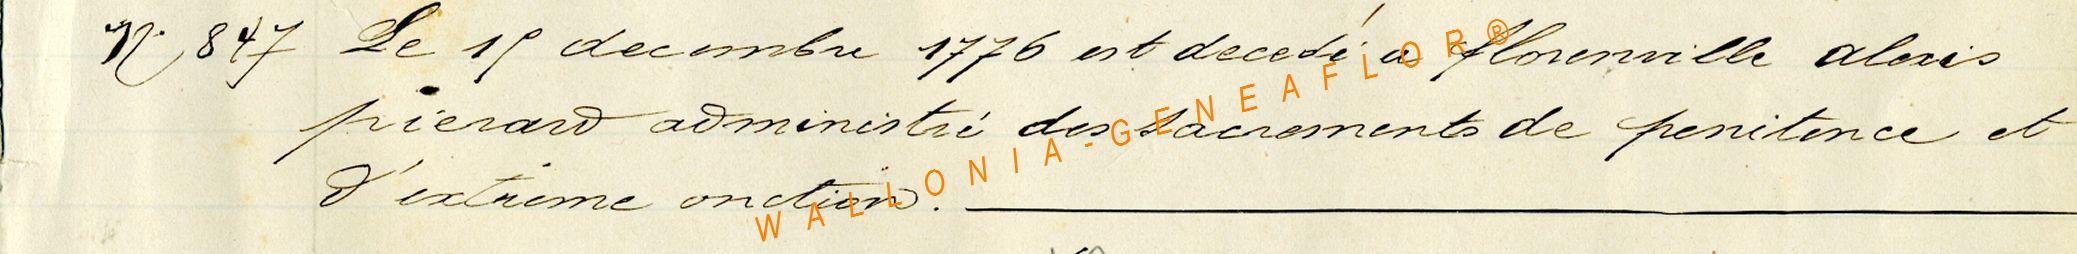 N. 847 Le 15 decembre 1776 est decedé a florenville alexis
pierard administré des sacrements de penitence et
d'extreme onction.
WALLONIA-GENEAFLOR®